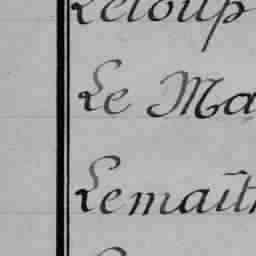 Leloup
Le Ma
Lemaît